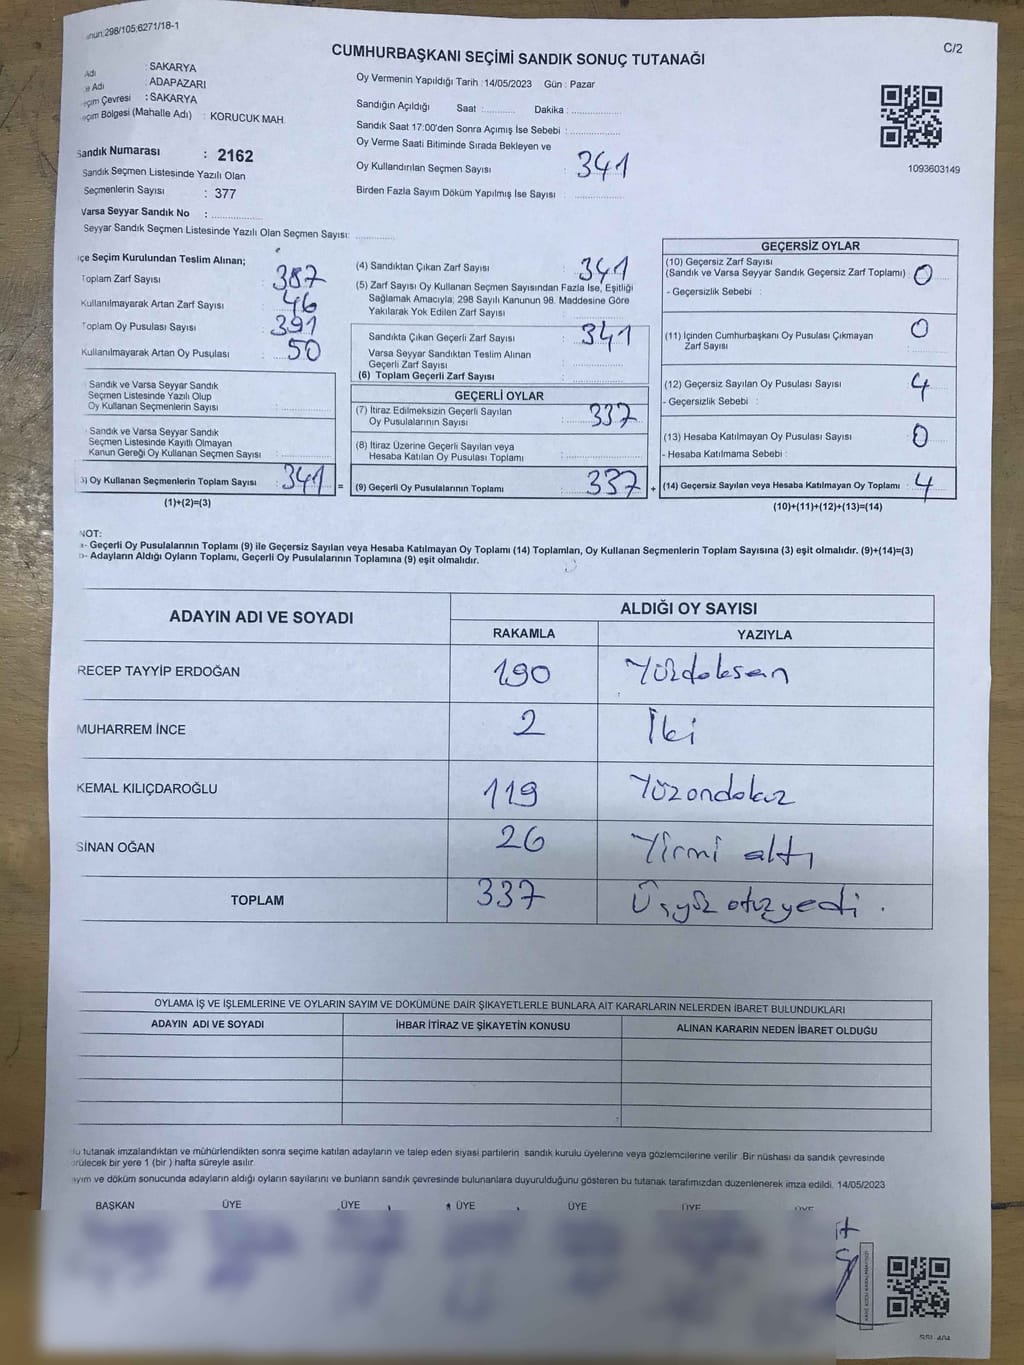 298/105;6271/18-1
C/2
CUMHURBAŞKANI SEÇİMİ SANDIK SONUÇ TUTANAĞI
Adı : SAKARYA
Adı : ADAPAZARI
Çevresi : SAKARYA
Bölgesi (Mahalle Adı) : KORUCUK MAH.
Sandık Numarası : 2162
Sandık Seçmen Listesinde Yazılı Olan
Seçmenlerin Sayısı : 377
Varsa Seyyar Sandık No :
Seyyar Sandık Seçmen Listesinde Yazılı Olan Seçmen Sayısı:
Oy Vermenin Yapıldığı Tarih : 14/05/2023 Gün : Pazar
Sandığın Açıldığı Saat : Dakika :
Sandık Saat 17:00'den Sonra Açımış İse Sebebi :
Oy Verme Saati Bitiminde Sırada Bekleyen ve
Oy Kullandırılan Seçmen Sayısı : 341
Birden Fazla Sayım Döküm Yapılmış İse Sayısı :
1093603149
Seçim Kurulundan Teslim Alınan;
Toplam Zarf Sayısı : 387
Kullanılmayarak Artan Zarf Sayısı : 46
Toplam Oy Pusulası Sayısı : 391
Kullanılmayarak Artan Oy Pusulası : 50
Sandık ve Varsa Seyyar Sandık
Seçmen Listesinde Yazılı Olup
Oy Kullanan Seçmenlerin Sayısı :
Sandık ve Varsa Seyyar Sandık
Seçmen Listesinde Kayıtlı Olmayan
Kanun Gereği Oy Kullanan Seçmen Sayısı :
Oy Kullanan Seçmenlerin Toplam Sayısı : 341 =
(1)+(2)=(3)
(4) Sandıktan Çıkan Zarf Sayısı : 341
(5) Zarf Sayısı Oy Kullanan Seçmen Sayısından Fazla İse, Eşitliği
Sağlamak Amacıyla; 298 Sayılı Kanunun 98. Maddesine Göre
Yakılarak Yok Edilen Zarf Sayısı :
Sandıkta Çıkan Geçerli Zarf Sayısı : 341
Varsa Seyyar Sandıktan Teslim Alınan
Geçerli Zarf Sayısı :
(6) Toplam Geçerli Zarf Sayısı :
GEÇERLİ OYLAR
(7) İtiraz Edilmeksizin Geçerli Sayılan
Oy Pusulalarının Sayısı : 337
(8) İtiraz Üzerine Geçerli Sayılan veya
Hesaba Katılan Oy Pusulası Toplamı :
(9) Geçerli Oy Pusulalarının Toplamı : 337 +
GEÇERSİZ OYLAR
(10) Geçersiz Zarf Sayısı
(Sandık ve Varsa Seyyar Sandık Geçersiz Zarf Toplamı) : 0
- Geçersizlik Sebebi :
(11) İçinden Cumhurbaşkanı Oy Pusulası Çıkmayan
Zarf Sayısı : 0
(12) Geçersiz Sayılan Oy Pusulası Sayısı : 4
- Geçersizlik Sebebi :
(13) Hesaba Katılmayan Oy Pusulası Sayısı : 0
- Hesaba Katılmama Sebebi :
(14) Geçersiz Sayılan veya Hesaba Katılmayan Oy Toplamı : 4
(10)+(11)+(12)+(13)=(14)
NOT:
- Geçerli Oy Pusulalarının Toplamı (9) ile Geçersiz Sayılan veya Hesaba Katılmayan Oy Toplamı (14) Toplamları, Oy Kullanan Seçmenlerin Toplam Sayısına (3) eşit olmalıdır. (9)+(14)=(3)
- Adayların Aldığı Oyların Toplamı, Geçerli Oy Pusulalarının Toplamına (9) eşit olmalıdır.
ADAYIN ADI VE SOYADI ALDIĞI OY SAYISI
RAKAMLA YAZIYLA
RECEP TAYYİP ERDOĞAN 190 Yüzdoksan
MUHARREM İNCE 2 İki
KEMAL KILIÇDAROĞLU 119 Yüzondokuz
SİNAN OĞAN 26 Yirmi altı
TOPLAM 337 Üçyüz otuzyedi .
OYLAMA İŞ VE İŞLEMLERİNE VE OYLARIN SAYIM VE DÖKÜMÜNE DAİR ŞİKAYETLERLE BUNLARA AİT KARARLARIN NELERDEN İBARET BULUNDUKLARI
ADAYIN ADI VE SOYADI İHBAR İTİRAZ VE ŞİKAYETİN KONUSU ALINAN KARARIN NEDEN İBARET OLDUĞU
tutanak imzalandıktan ve mühürlendikten sonra seçime katılan adayların ve talep eden siyasi partilerin sandık kurulu üyelerine veya gözlemcilerine verilir. Bir nüshası da sandık çevresinde
bir yere 1 (bir ) hafta süreyle asılır.
ve döküm sonucunda adayların aldığı oyların sayılarını ve bunların sandık çevresinde bulunanlara duyurulduğunu gösteren bu tutanak tarafımızdan düzenlenerek imza edildi. 14/05/2023
BAŞKAN ÜYE ÜYE ÜYE ÜYE ÜYE ÜYE